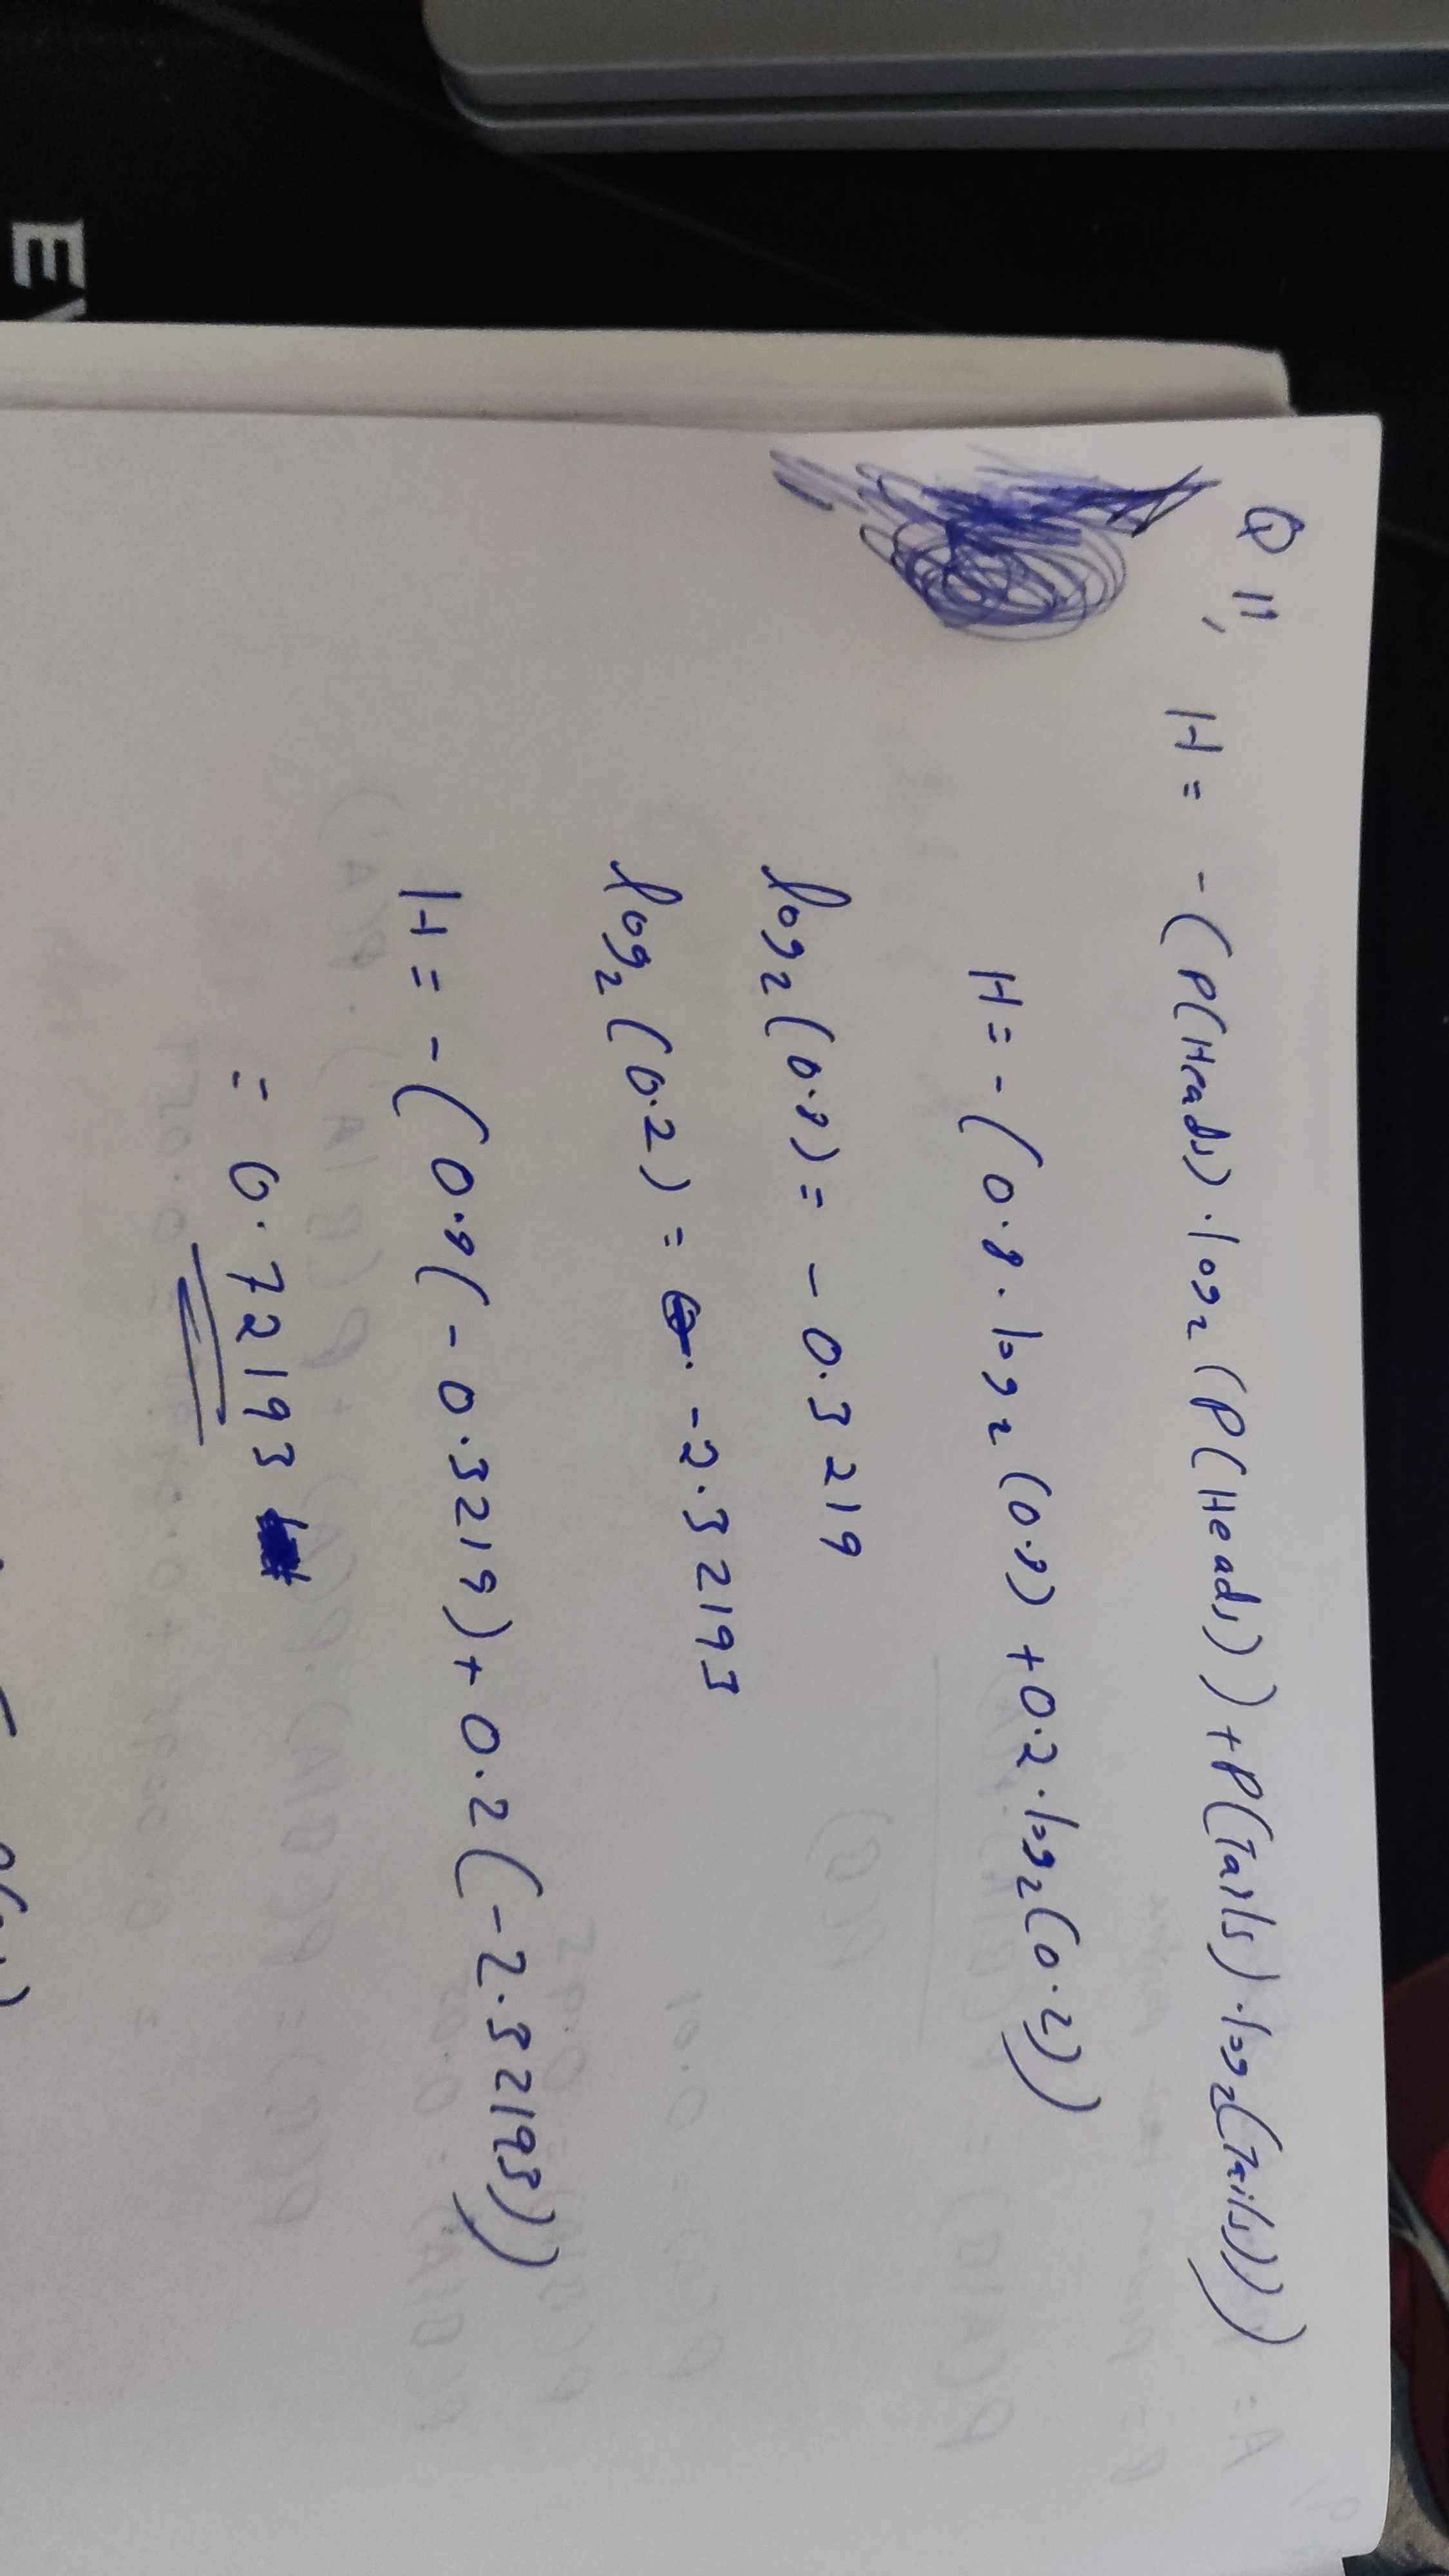 Q 11,
H = -(P(Heads) · log₂ (P(Heads)) + P(Tails) · log₂(Tails)))
H = -(0.8 · log₂ (0.8) + 0.2 · log₂(0.2))
log₂(0.8) = - 0.3219
log₂(0.2) = -2.32193
H = -(0.8(- 0.3219) + 0.2(-2.32193))
= 0.72193